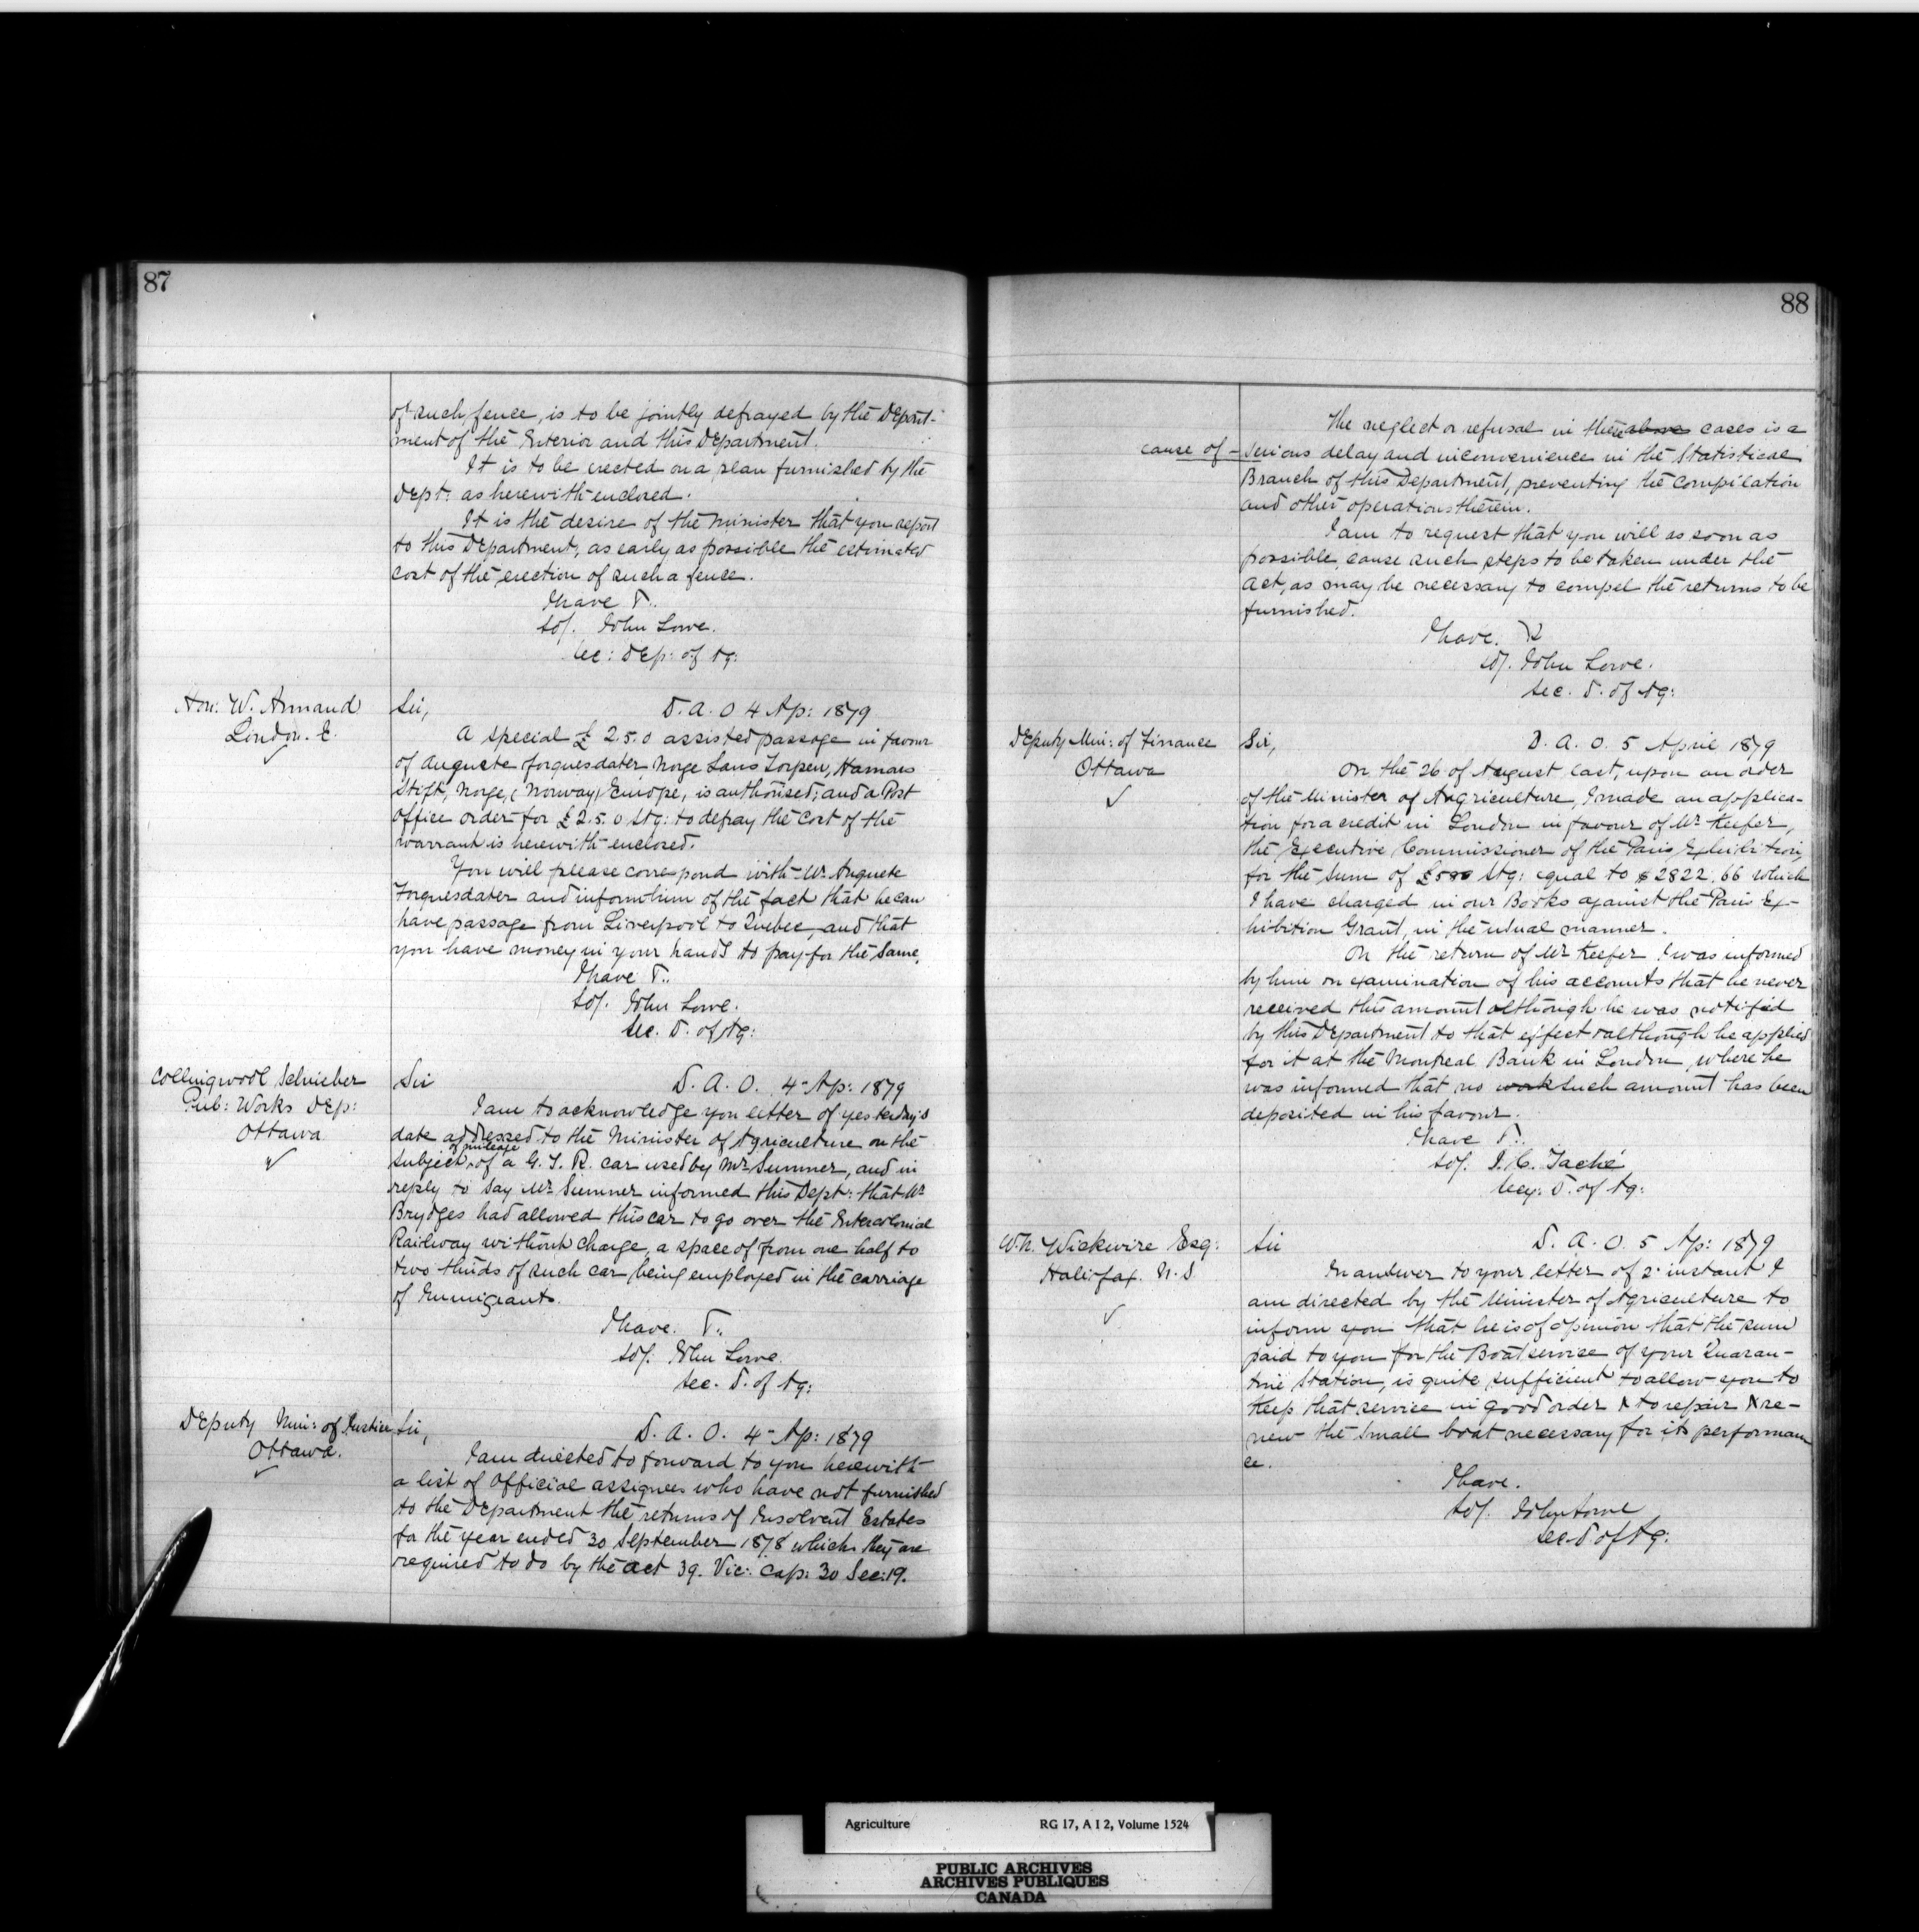 87
of such fence, is to be jointly defrayed by the Depart-
ment of the Interior and this Department.
It is to be erected on a plan furnished by the
Dept: as herewith enclosed.
It is the desire of the Minister that you report
to this Department, as early as possible the estimated
cost of the erection of such a fence.
I have
sd/. John Lowe.
Sec: Dep: of Ag:
Hon: W. Annand
London. E.
Sir, D. A. O 4 Ap: 1879
A special £ 2.5.0 assisted passage in favour
of Auguste Forquesdater, Norge Lans Torpen, Hamars
Stift, Norge, (Norway) Europe, is authorised; and a Post
Office order for £2.5.0 Stg: to defray the cost of the
warrant is herewith enclosed.
You will please correspond with Mr. Auguste
Forquesdater and inform him of the fact that he can
have passage from Liverpool to Quebec, and that
you have money in your hands to pay for the same.
I have
sd/. John Lowe.
Sec. D. of Ag:
Collingwood Schrieber
Pub: Works Dep:
Ottawa
Sir D. A. O. 4 Ap: 1879
I am to acknowledge you letter of yesterday's
date addressed to the Minister of Agriculture on the
of mileage
subject of a G. T. R. car used by Mr. Sumner, and in
reply to say Mr. Sumner informed this Dept: that Mr
Brydges had allowed this car to go over the Intercolonial
Railway without charge, a space of from one half to
two thirds of such car, being employed in the carriage
of Immigrants.
I have.
sd/. John Lowe.
Sec. D. of Ag:
Deputy Min: of Justice
Ottawa.
Sir, D. A. O. 4 Ap: 1879
I am directed to forward to you herewith
a list of Official assignees who have not furnished
to the Department the returns of Insolvent Estates
for the year ended 30 September 1878 which they are
required to do by the Act 39. Vic: Cap: 30 Sec: 19.
88
The neglect or refusal in these above cases is a
cause of serious delay and inconvenience in the Statistical
Branch of this Department, preventing the compilation
and other operations therein.
I am to request that you will as soon as
possible, cause such steps to be taken under the
Act, as may be necessary to compel the returns to be
furnished.
I have.
sd/. John Lowe.
Sec. D. of Ag:
Deputy Min: of Finance
Ottawa
Sir, D. A. O. 5 April 1879
On the 26 of August last, upon an order
of the Minister of Agriculture, I made an applica-
tion for a credit in London in favour of Mr. Keefer,
the Executive Commissioner of the Paris Exhibition,
for the sum of £580 Stg: equal to $2822.66 which
I have charged in our Books against the Paris Ex-
hibition Grant, in the usual manner.
On the return of Mr Keefer I was informed
by him on examination of his accounts that he never
received this amount although he was notified
by this Department to that effect & although he applied
for it at the Montreal Bank in London, where he
was informed that no work such amount has been
deposited in his favour.
I have
sd/. J. C. Taché
Secy: D. of Ag:
W.N. Wickwire Esq:
Halifax. N. S
Sir D. A. O. 5 Ap: 1879
In answer to your letter of 2 instant I
am directed by the Minister of Agriculture to
inform you that he is of opinion that the sum
paid to you for the Boat service of your Quaran-
tine Station, is quite sufficient to allow you to
keep that service in good order & to repair & re-
new the small boat necessary for its performan
ce.
I have.
sd/. John Lowe
Sec. D of Ag:
Agriculture RG 17, A I 2, Volume 1524
PUBLIC ARCHIVES
ARCHIVES PUBLIQUES
CANADA